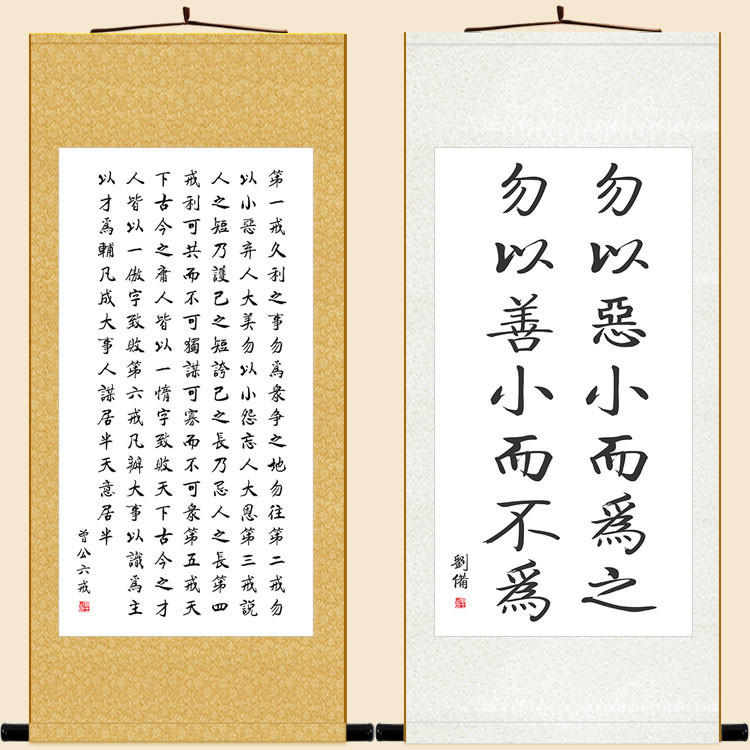 第一戒久利之事勿爲衆争之地勿往第二戒勿
以小惡弃人大美勿以小怨忘人大恩第三戒説
人之短乃護己之短誇己之長乃忌人之長第四
戒利可共而不可獨謀可寡而不可衆第五戒天
下古今之庸人皆以一惰字致敗天下古今之才
人皆以一傲字致敗第六戒凡辦大事以識爲主
以才爲輔凡成大事人謀居半天意居半
曾公六戒
勿以惡小而爲之
勿以善小而不爲
劉備